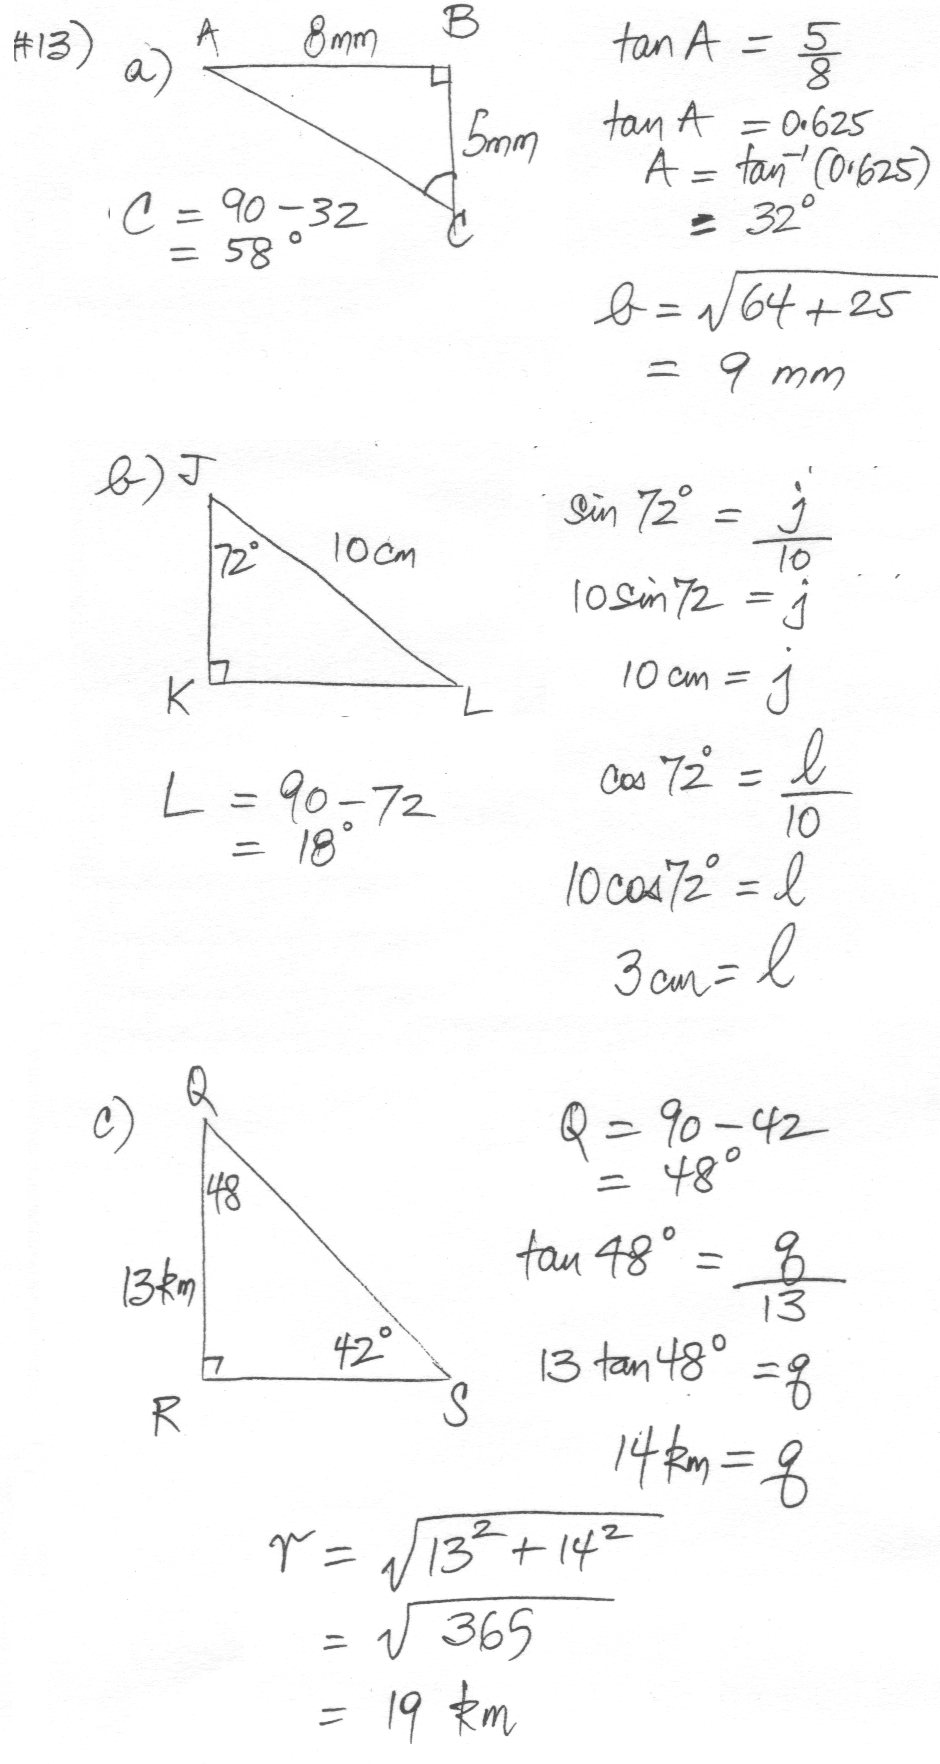 #13)
a)
A 8mm B
5mm
C
C = 90 - 32
= 58°
tan A = 5/8
tan A = 0.625
A = tan⁻¹(0.625)
= 32°
b = √64 + 25
= 9 mm
b)
J
72° 10cm
K L
L = 90 - 72
= 18°
sin 72° = j/10
10 sin 72 = j
10 cm = j
cos 72° = l/10
10 cos 72° = l
3 cm = l
c)
Q
48
13km
42°
R S
Q = 90 - 42
= 48°
tan 48° = q/13
13 tan 48° = q
14 km = q
r = √13² + 14²
= √365
= 19 km